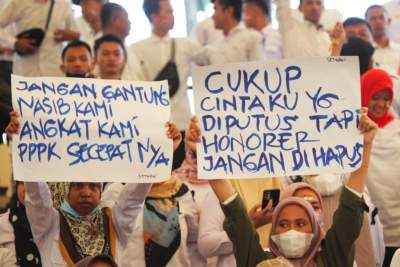 JANGAN GANTUNG
NASIB KAMI
ANGKAT KAMI
PPPK SECEPATNYA
CUKUP
CINTAKU YG
DIPUTUS TAPI
HONORER
JANGAN DI HAPUS